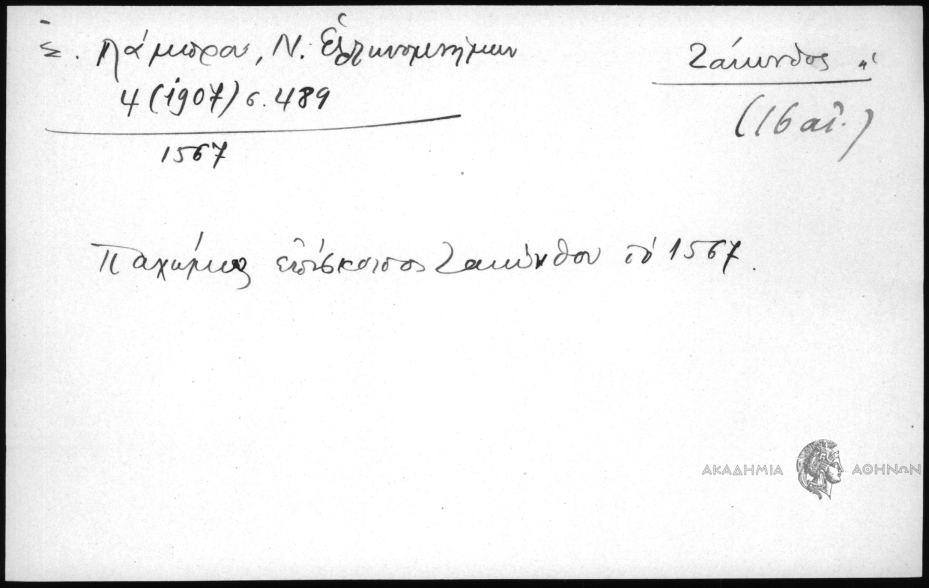 Σ. Λάμπρου, Ν. Ἑλληνομνήμων
4 (1907) σ. 489
1567
Ζάκυνθος
(16 αἰ.)
Παχώμιος ἐπίσκοπος Ζακύνθου τό 1567.
ΑΚΑΔΗΜΙΑ ΑΘΗΝΩΝ